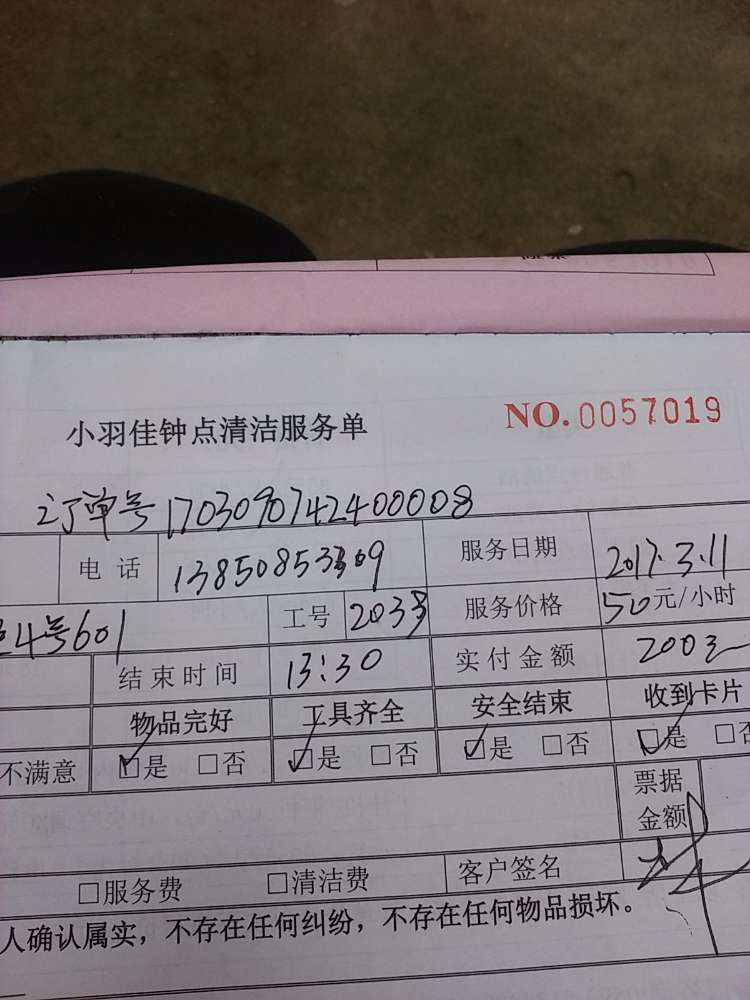 小羽佳钟点清洁服务单 NO.0057019
订单号 170309074240008
电 话 13850853309 服务日期 2017.3.11
4号601 工号 2033 服务价格 50元/小时
结束时间 13:30 实付金额 200元
物品完好 工具齐全 安全结束 收到卡片
不满意 ☑是 □否 ☑是 □否 ☑是 □否 ☑是 □否
票据
金额
□服务费 □清洁费 客户签名
人确认属实，不存在任何纠纷，不存在任何物品损坏。